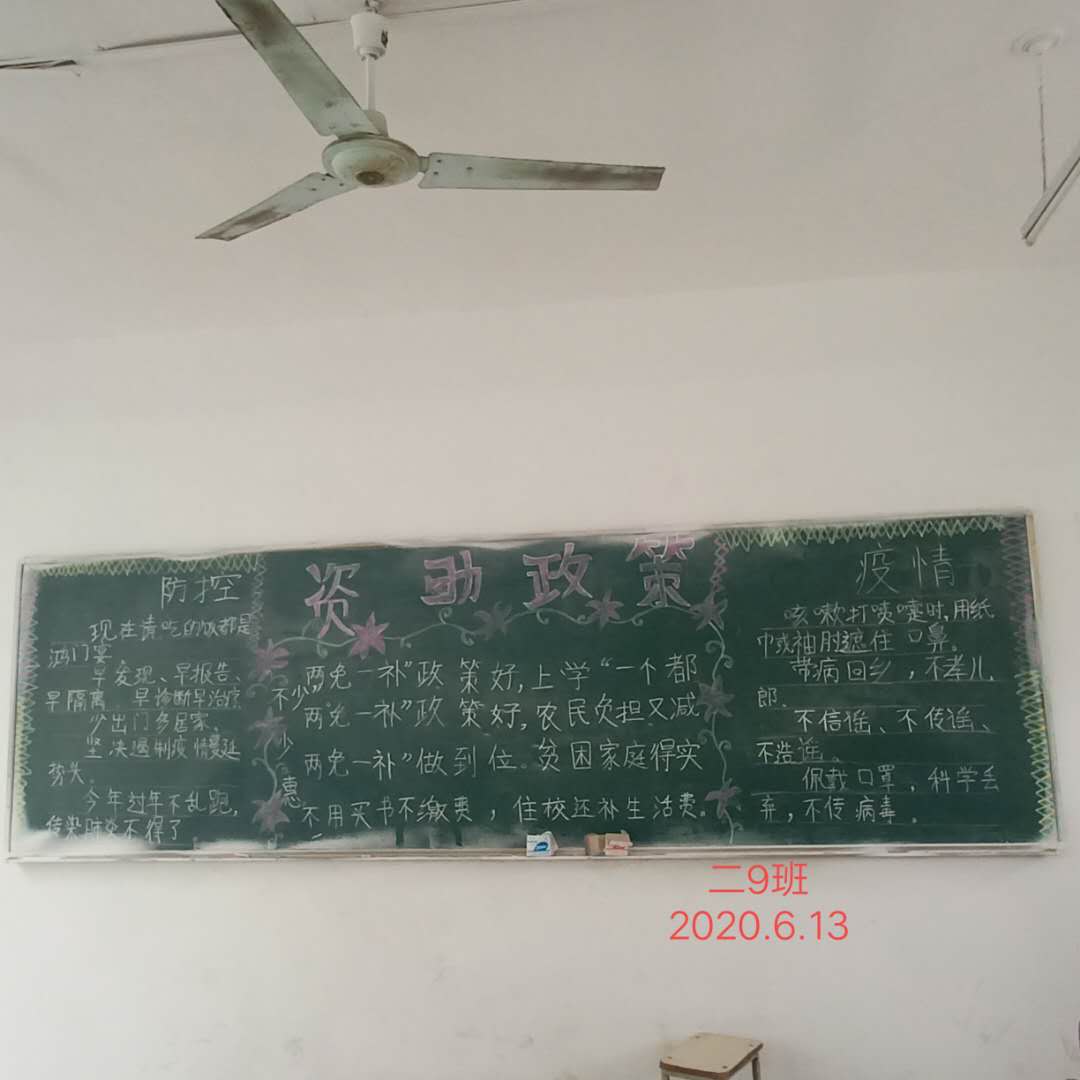 防控
现在请吃的饭都是
鸿门宴
早发现、早报告、
早隔离、早诊断早治疗
少出门多居家、
坚决遏制疫情蔓延
势头。
今年过年不乱跑,
传染肺炎不得了
资助政策
两免一补”政策好,上学“一个都
不少”。
两免一补”政策好,农民负担又减
少
两免一补”做到位。贫困家庭得实
惠
不用买书不缴费,住校还补生活费。
疫情
咳嗽打喷嚏时,用纸
巾或袖肘遮住口鼻。
带病回乡,不孝儿
郎.
不信谣、不传谣、
不造谣。
佩戴口罩,科学丢
弃,不传病毒。
二9班
2020.6.13